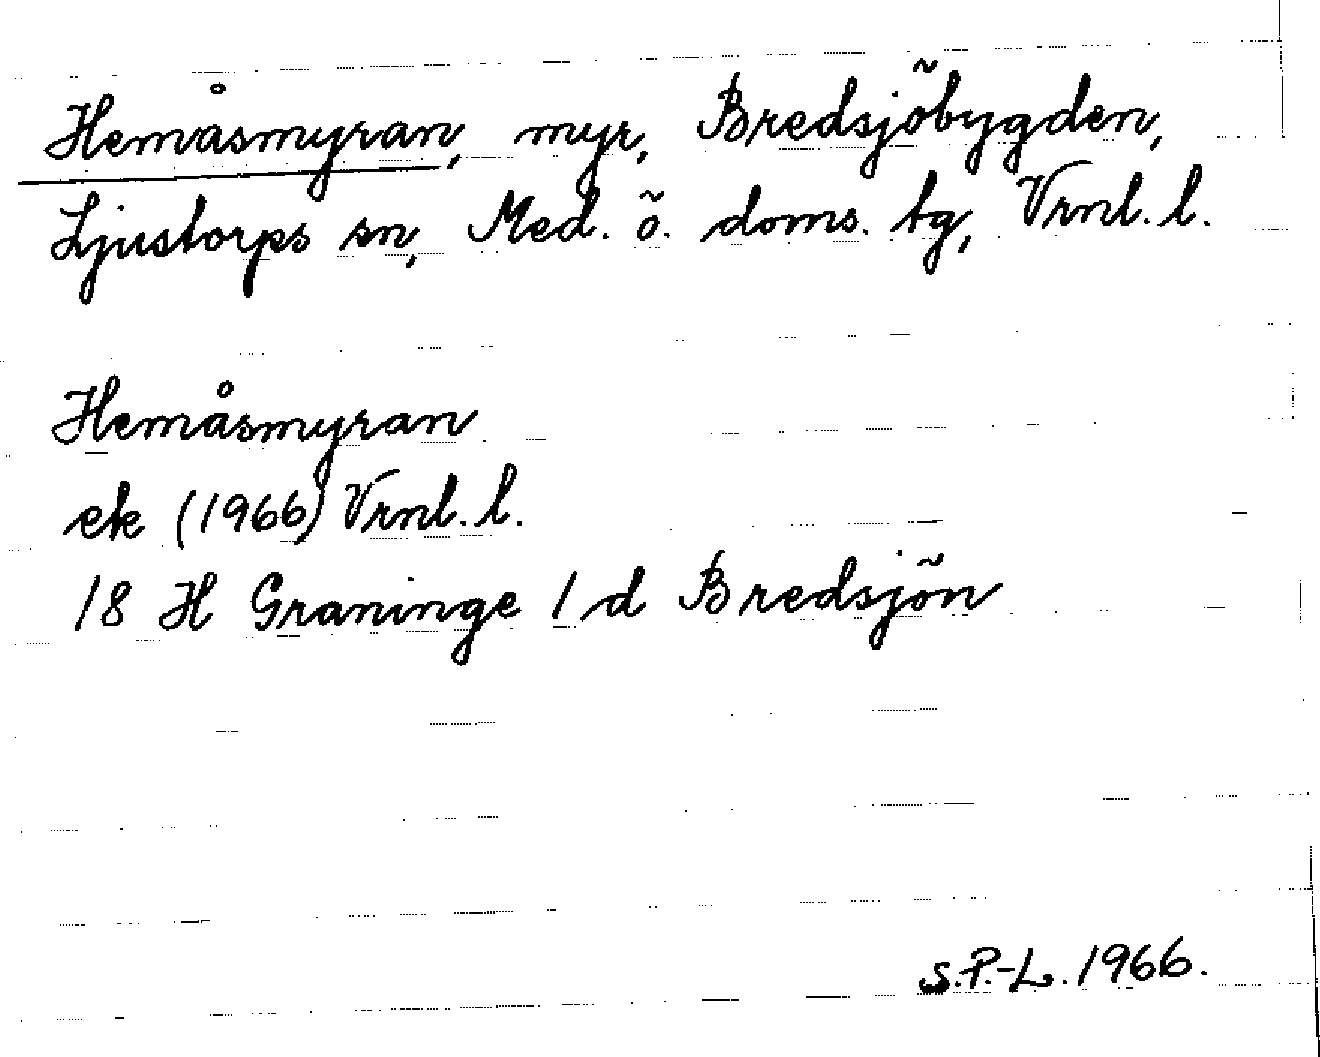 Hemåsmyran, myr, Bredsjöbygden,
Ljustorps sn, Med. ö. doms. tg, Vrnl. l.
Hemåsmyran
ek (1966) Vrnl. l.
18 H Graninge 1 d Bredsjön
S.P.-L. 1966.